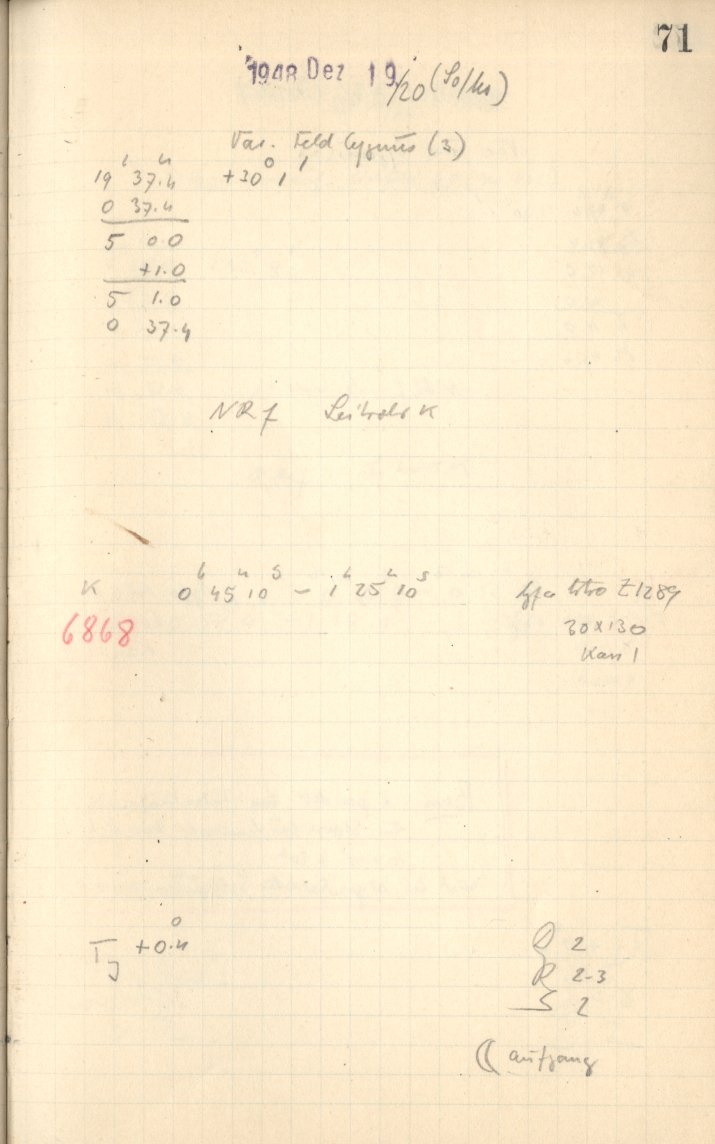 71
1948 Dez 19/20 (So/
Var. Feld Cygnus (3)
19 h 37.4 m +30° 1'
0 37.4
5 0.0
+1.0
5 1.0
0 37.4
NR 7 Leitrohr K
K 0 h 45 m 10 s – 1 h 25 m 10 s Agfa Astro Z1289
6868 30x130
Kass 1
+0.4°
Q 2
R 2-3
S 2
☾ aufgang